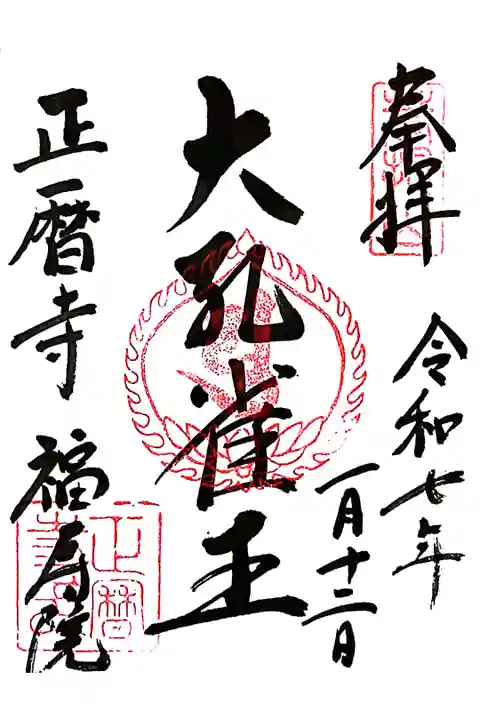 奉拝
令和七年
一月十二日
大孔雀王
正暦寺 福寿院
正暦